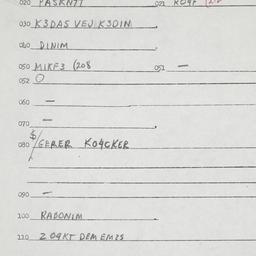 020 PASKNTT 021 KO4F
030 K3DAS VEJ K3DIN
040 DINIM
050 MIKF3 (208 051 —
052 O
060 —
070 —
080 $/GERER KO4CKER
090 —
100 RABONIM
110 2 O4KT DEM EM2S